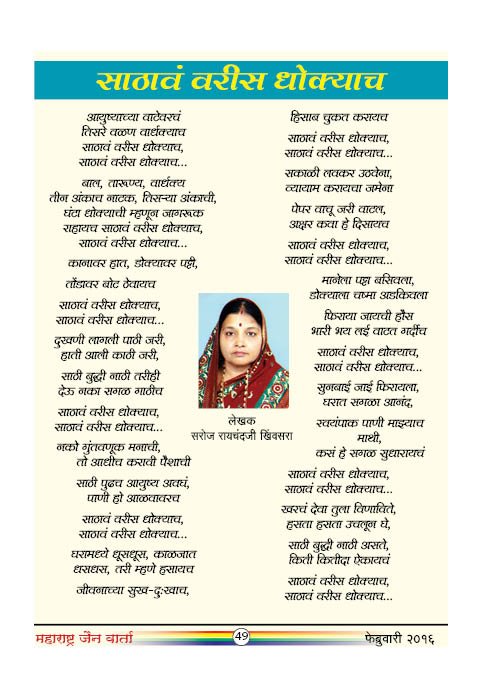 साठावं वरीस धोक्याच
आयुष्याच्या वाटेवरचं
तिसरे वळण वार्धक्याच
साठावं वरीस धोक्याच,
साठावं वरीस धोक्याच...
बाल, तारूण्य, वार्धक्य
तीन अंकाच नाटक, तिसऱ्या अंकाची,
घंटा धोक्याची म्हणून जागरूक
राहायच साठावं वरीस धोक्याच,
साठावं वरीस धोक्याच...
कानावर हात, डोक्यावर पट्टी,
तोंडावर बोट ठेवायच
साठावं वरीस धोक्याच,
साठावं वरीस धोक्याच...
दुखणी लागली पाठी जरी,
हाती आली काठी जरी,
साठी बुद्धी नाठी तरीही
देऊ नका सगळ गाठीच
साठावं वरीस धोक्याच,
साठावं वरीस धोक्याच...
नको गुंतवणूक मनाची,
तो आधीच करावी पैशाची
साठी पुढच आयुष्य अवघं,
पाणी हो आळवावरच
साठावं वरीस धोक्याच,
साठावं वरीस धोक्याच...
घरामध्ये धूसधूस, काळजात
धसधस, तरी म्हणे हसायच
जीवनाच्या सुख-दुःखाच,
लेखक
सरोज रायचंदजी खिंवसरा
हिसाब चुकत करायच
साठावं वरीस धोक्याच,
साठावं वरीस धोक्याच...
सकाळी लवकर उठवेना,
व्यायाम करायचा जमेना
पेपर वाचू जरी वाटल,
अक्षर कवा हे दिसायच
साठावं वरीस धोक्याच,
साठावं वरीस धोक्याच...
मानेला पट्टा बसिवला,
डोक्याला चष्मा अडकिवला
फिराया जायची हौस
भारी भय लई वाटत गर्दीच
साठावं वरीस धोक्याच,
साठावं वरीस धोक्याच...
सुनबाई जाई फिरायला,
घरात सगळा आनंद,
स्वयंपाक पाणी माझ्याच
माथी,
कसं हे सगळ सुधारायचं
साठावं वरीस धोक्याच,
साठावं वरीस धोक्याच...
खरचं देवा तुला विणाविते,
हसता हसता उचलून घे,
साठी बुद्धी नाठी असते,
किती कितीदा ऐकायचं
साठावं वरीस धोक्याच,
साठावं वरीस धोक्याच...
महाराष्ट्र जैन वार्ता
49
फेब्रुवारी २०१६